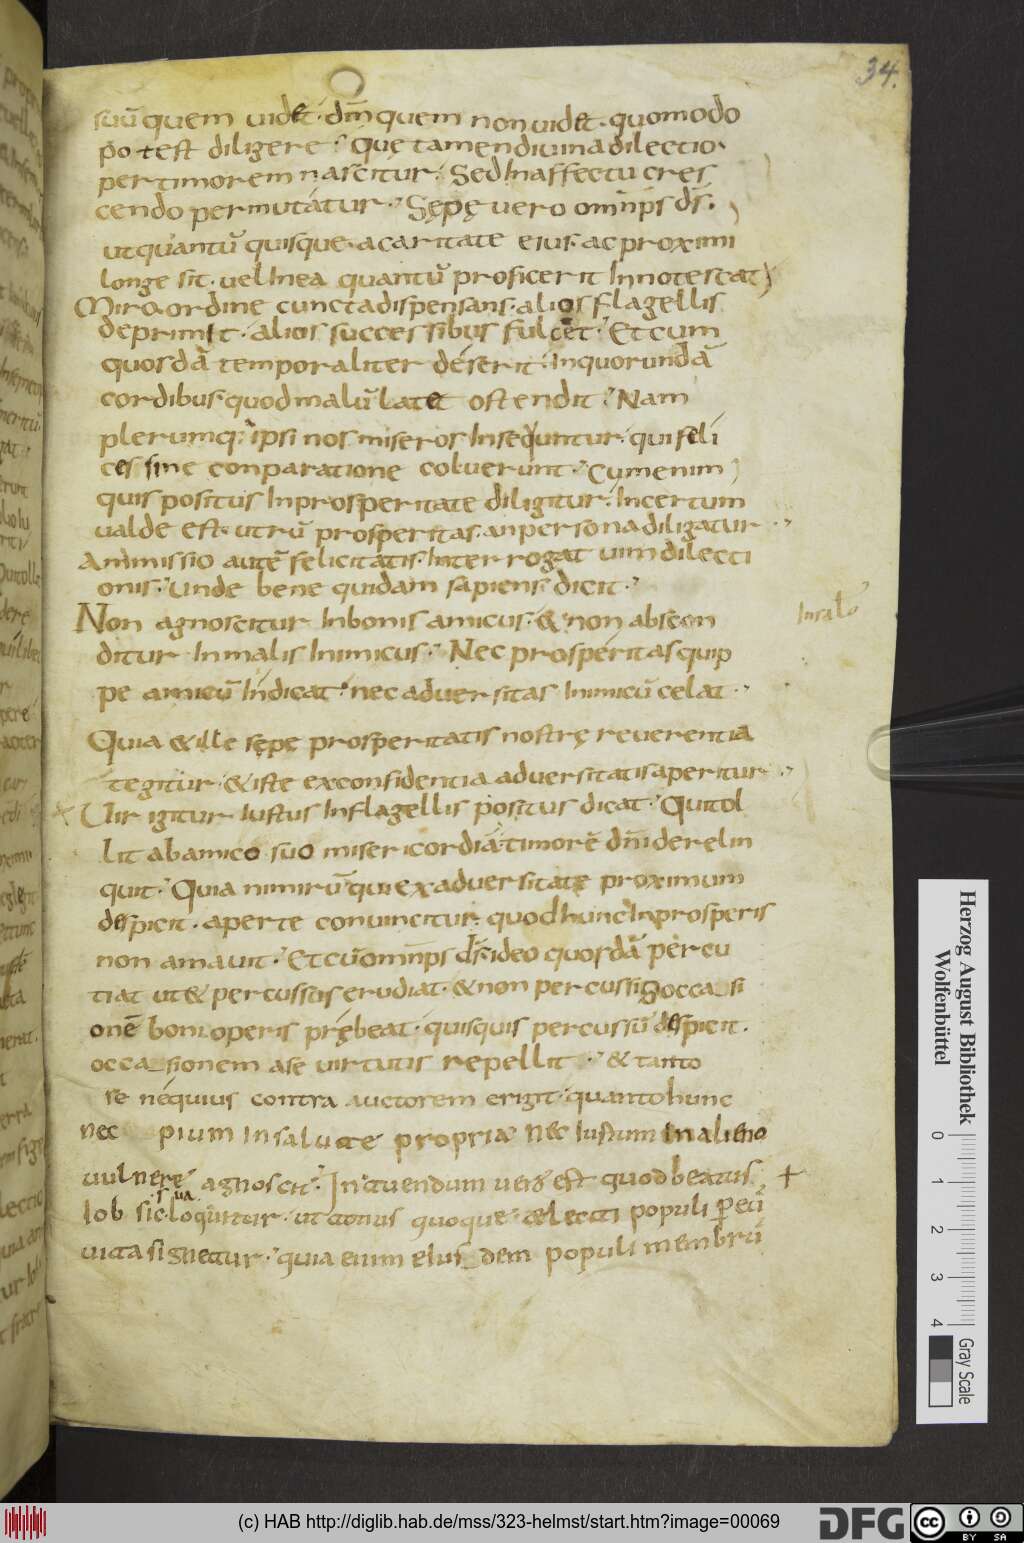 34.
suū quem uidet· dm̄ quem non uidet· quomodo
potest diligere? Quę tamen diuina dilectio·
per timorem nascitur· Sed In affectu cres
cendo permutatur· Sępę uero omn̄ps ds̄·
ut quantū quisque· a caritate eius· ac proximi
longe sit· uel In ea quantū proficerit Innotescat
Miro ordine cuncta dispensans· alios flagellis
deprimit· alios successibus fulcet· Et cum
quosdā temporaliter deserit· In quorundā
cordibus· quod malū latet ostendit· Nam
plerumq; ipsi nos miseros Insequntur· qui feli
ces sine conparatione coluerunt· Cum enim
quis positus In prosperitate diligitur· Incertum
ualde est· utrū prosperitas· an persona diligatur··
Ammissio autē felicitatis· Inter rogat uim dilecti
onis· Unde bene quidam sapiens dicit·
Non agnoscitur In bonis amicus· & non abscon
ditur In malis Inimicus· Nec prosperitas quip
pe amicū Indicat· nec aduersitas Inimicū celat··
Quia & ille sępe prosperitatis nostrę reuerentia
tegitur· & iste ex confidentia aduersitatis aperitur··
Uir igitur Iustus In flagellis positus dicat· Qui tol
lit ab amico suo misericordiā· timorē dn̄i derelin
quit· Quia nimirū qui ex aduersitate proximum
despicit· aperte conuincitur· quod hunc In prosperis
non amauit· Et cū omn̄ps ds̄· ideo quosdā percu
tiat ut & percussus erudiat· & non percussis occasi
onē boni operis prębeat· quisquis percussū despicit·
occasionem a se uirtutis repellit· & tanto
se nequius contra auctorem erigit· quanto hunc
nec pium In salute propria nec Iustum In alieno
uulnere agnoscit· Intuendum uero est quod beatus +
Iob sic loquitur· ut totius quoque electi populi
uita signetur· quia enim eius dem populi membrū
Herzog August Bibliothek
Wolfenbüttel
0 1 2 3 4
Gray Scale
(c) HAB http://diglib.hab.de/mss/323-helmst/start.htm?image=00069
DFG
cc BY SA